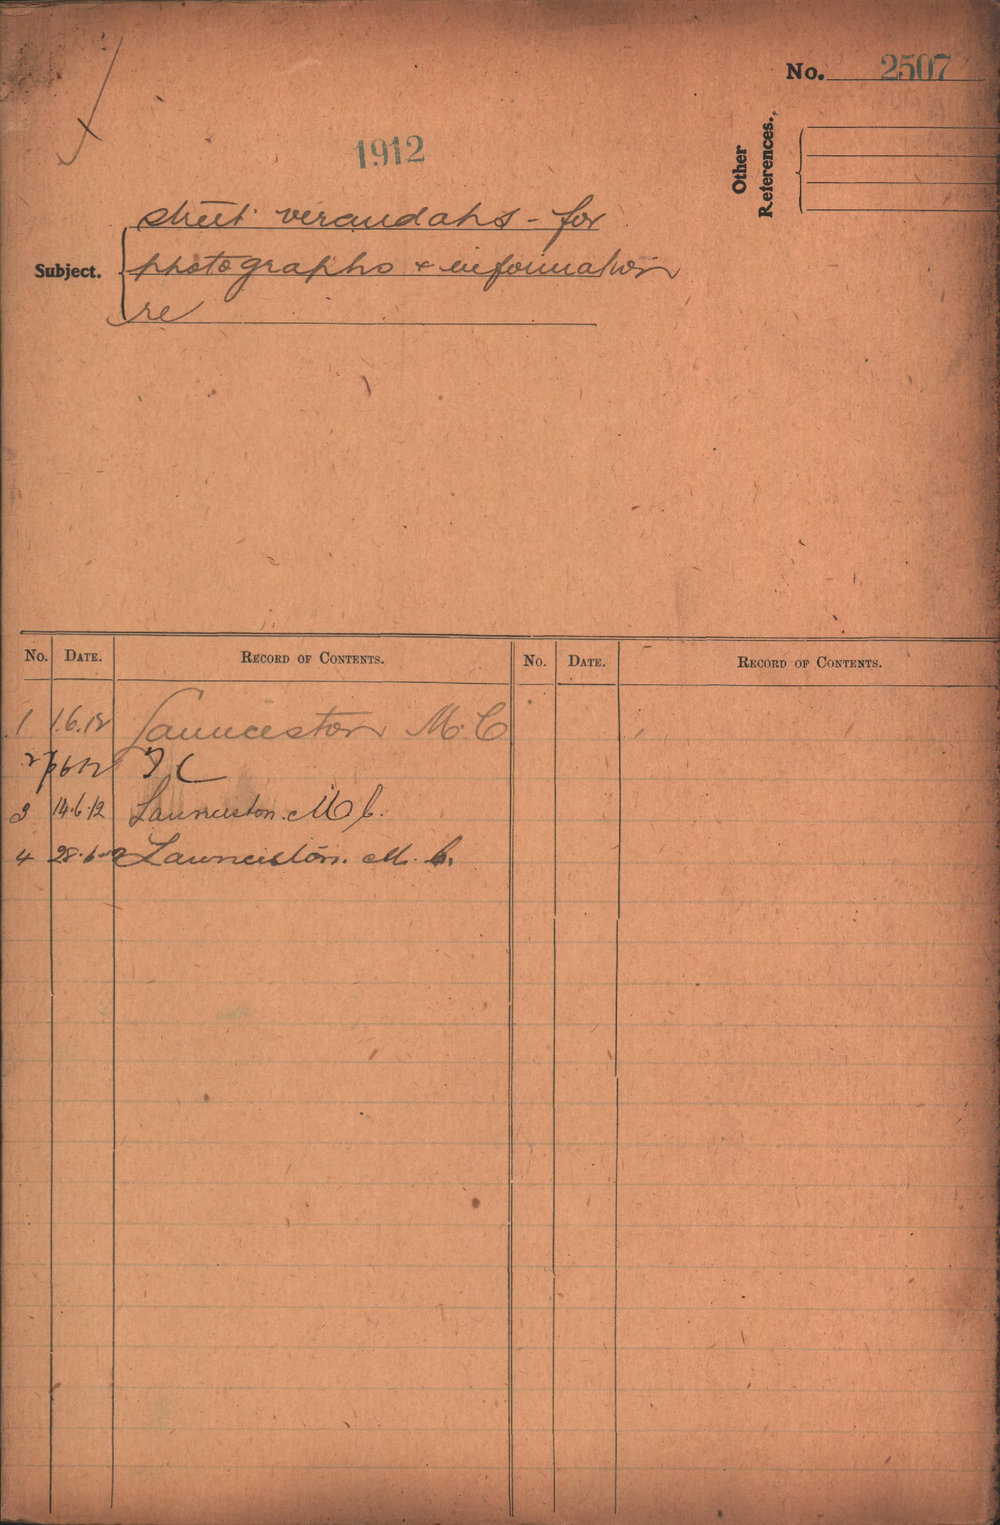 No. 2507
Other
References.
1912
Subject.
street verandahs - for
photographs + information
re
No. DATE. RECORD OF CONTENTS. No. DATE. RECORD OF CONTENTS.
1 1.6.12 Launceston M.C
2 6.12 T C
3 14.6.12 Launceston. M C.
4 28.6. Launceston. M. C.